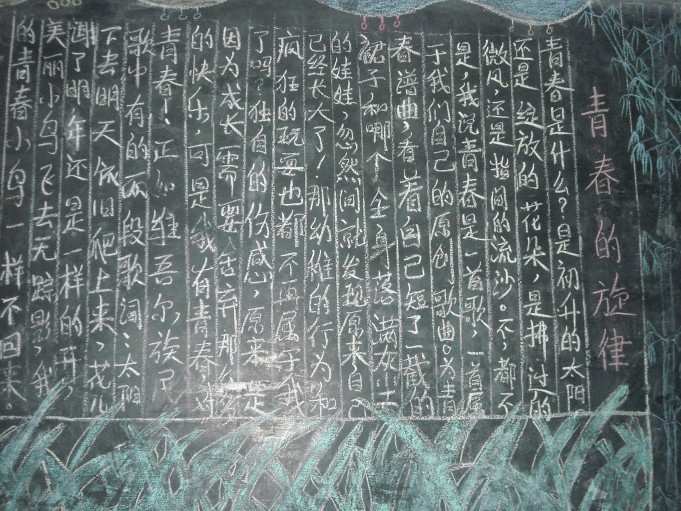 青春的旋律
青春是什么？是初升的太阳
还是绽放的花朵，是拂过的
微风，还是指间的流沙。不，都不
是，我说青春是一首歌，一首属
于我们自己的原创歌曲。为青
春谱曲，看着自己短了一截的
裙子，和哪个全身落满灰土
的娃娃，忽然间就发现原来自己
已经长大了！那幼稚的行为和
疯狂的玩耍也都不再属于我
了吗？独自的伤感，原来是
因为成长需要舍弃那
的快乐，可是我有青春对
青春！正如维吾尔族民
歌中有的两段歌词：太阳
下去明天依旧爬上来，花儿
谢了明年还是一样的开，
美丽小鸟飞去无踪影，我
的青春小鸟一样不回来